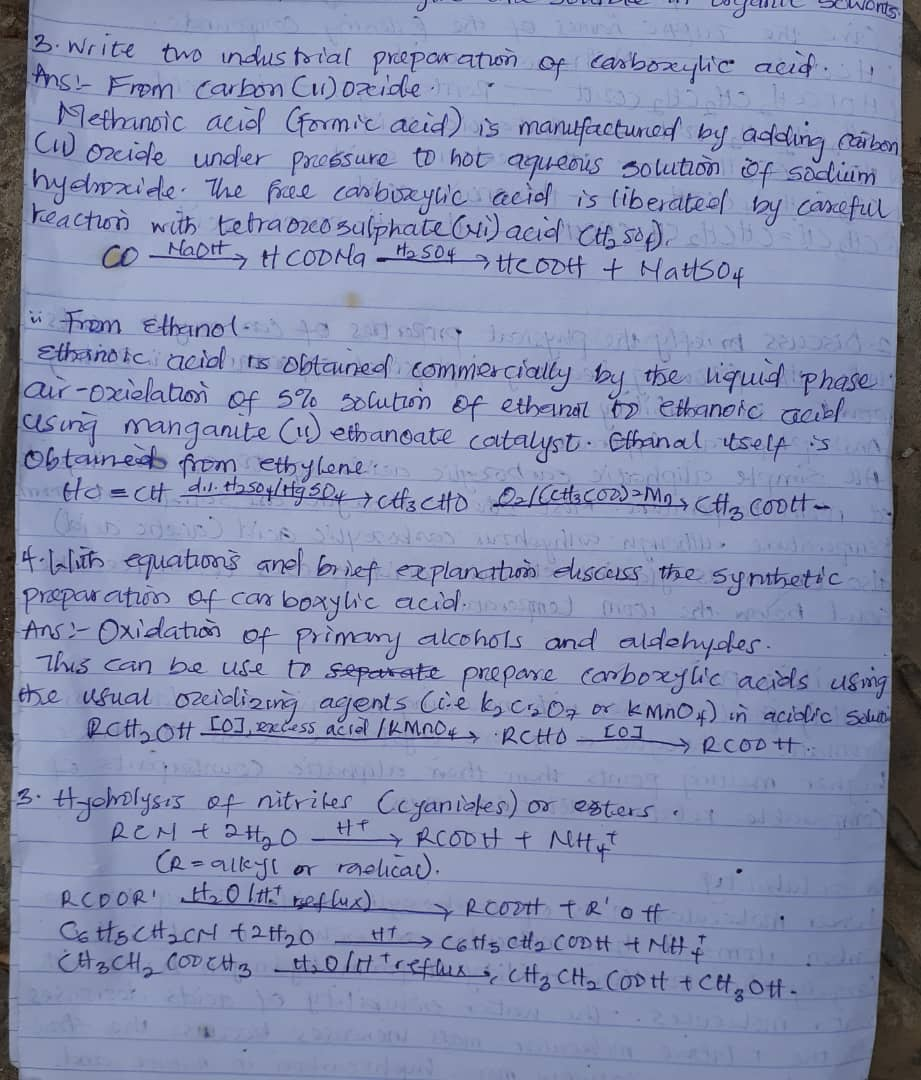 in organic solvents.
3. Write two industrial preparation of carboxylic acid.
Ans:- From Carbon (ii) oxide.
Methanoic acid (formic acid) is manufactured by adding carbon
(ii) oxide under pressure to hot aqueous solution of sodium
hydroxide. The free carboxylic acid is liberated by careful
reaction with tetraoxosulphate (vi) acid (H₂SO₄).
CO NaOH → HCOONa H₂SO₄ → HCOOH + NaHSO₄
ii From Ethanol.
Ethanoic acid is obtained commercially by the liquid phase
air-oxidation of 5% solution of ethanol to Ethanoic acid
using manganite (ii) ethanoate catalyst. Ethanal itself is
Obtained from ethylene.
HC = CH dil. H₂SO₄/HgSO₄ → CH₃CHO O₂/(CH₃COO)₂Mn → CH₃COOH-
4. With equations and brief explanation discuss the synthetic
preparation of carboxylic acid.
Ans:- Oxidation of primary alcohols and aldehydes.
This can be use to separate prepare carboxylic acids using
the usual oxidizing agents (i.e K₂Cr₂O₇ or KMnO₄) in acidic soluti
RCH₂OH [O], excess acid /KMnO₄ → RCHO [O] → RCOOH.
3. Hydrolysis of nitriles (cyanides) or esters.
RCN + 2H₂O H⁺ → RCOOH + NH₄⁺
(R = alkyl or radical).
RCOOR' H₂O/H⁺ reflux) → RCOOH + R'OH
C₆H₅CH₂CN + 2H₂O H⁺ → C₆H₅CH₂COOH + NH₄⁺
CH₃CH₂COOCH₃ H₂O/H⁺ reflux → CH₃CH₂COOH + CH₃OH.